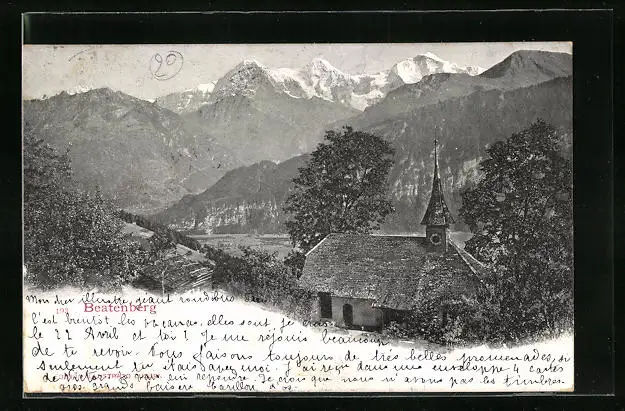 20
Mon cher illustre, géant
193 Beatenberg
C'est bientôt les vacances, elles sont je crois
le 22 Avril et toi? Je me réjouis beaucoup
de te revoir. Nous faisons toujours de très belles promenades, si
seulement tu étais avec moi. J'ai reçu dans une enveloppe 4 cartes
de Victor répondre. Je crois que nous n'avons pas les timbres
grands baisers